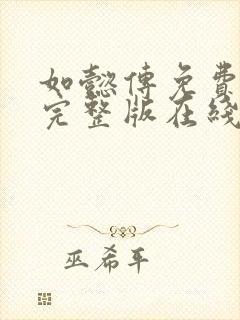 如懿傅免費
完整版在綫
巫希平